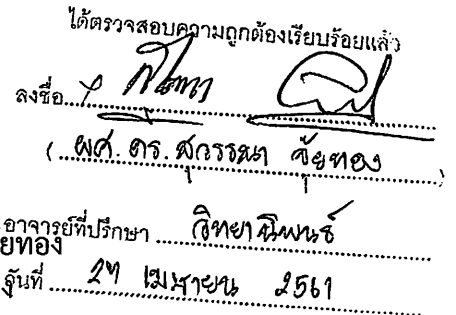 ได้ตรวจสอบความถูกต้องเรียบร้อยแล้ว
ลงชื่อ
( ผศ. ดร. สุวรรณา จุ้ยทอง )
อาจารย์ที่ปรึกษา วิทยานิพนธ์
ยทอง
วันที่ 27 เมษายน 2561